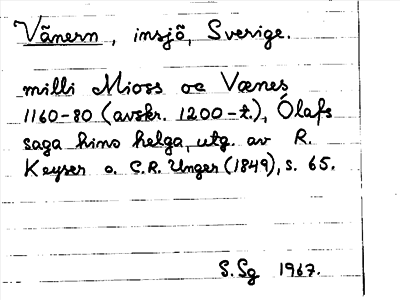 Vänern, insjö, Sverige.
milli Mioss oc Vænes
1160-80 (avskr. 1200-t.), Ólafs
saga hins helga, utg. av R.
Keyser o. C.R. Unger (1849), s. 65.
S.Sg 1967.